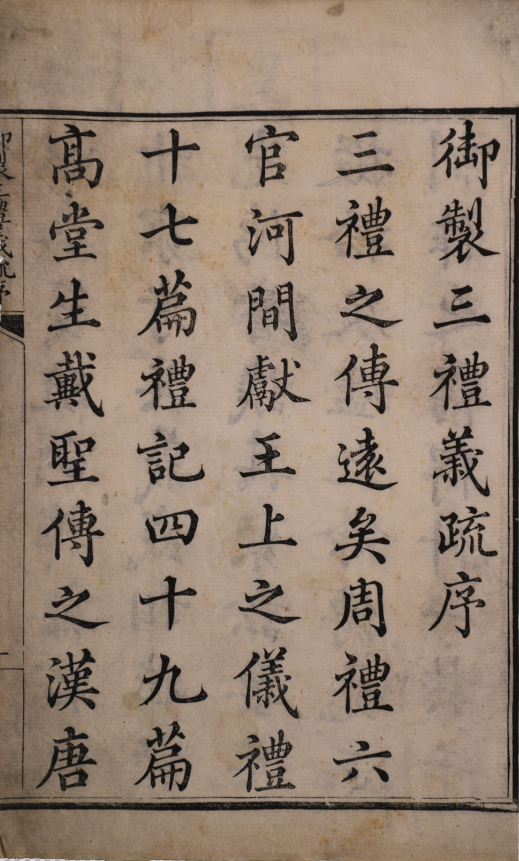 御製三禮義疏序
三禮之傳遠矣周禮六
官河間獻王上之儀禮
十七篇禮記四十九篇
高堂生戴聖傳之漢唐
御製三禮義疏序
一